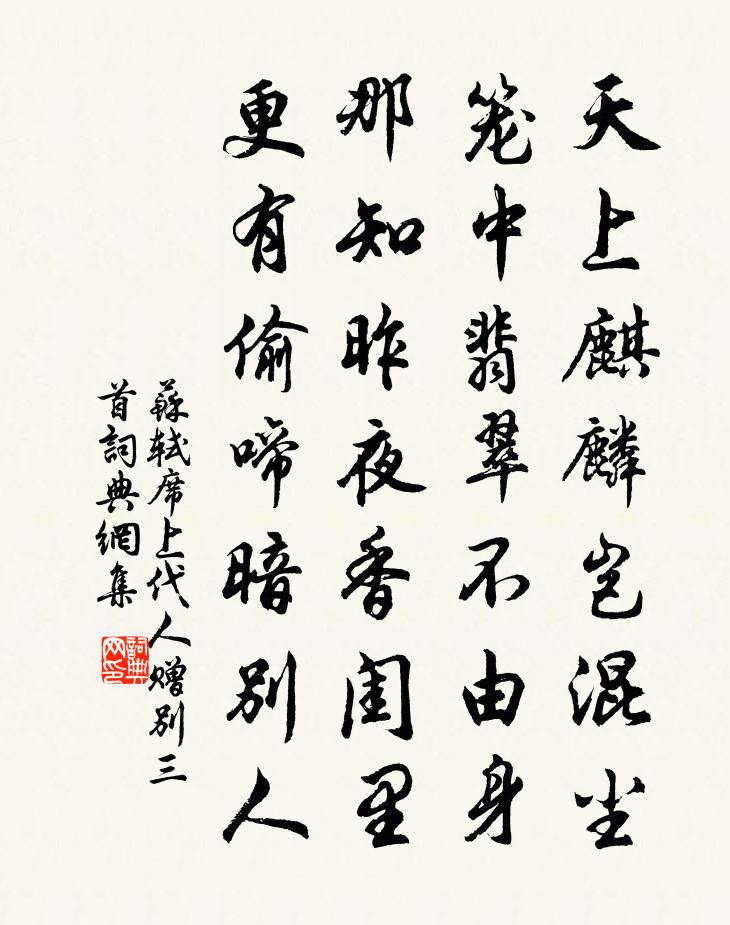 天上麒麟岂混尘
笼中翡翠不由身
那知昨夜香闺里
更有偷啼暗别人
蘇軾席上代人赠别三
首詞典網集
詞典
网印